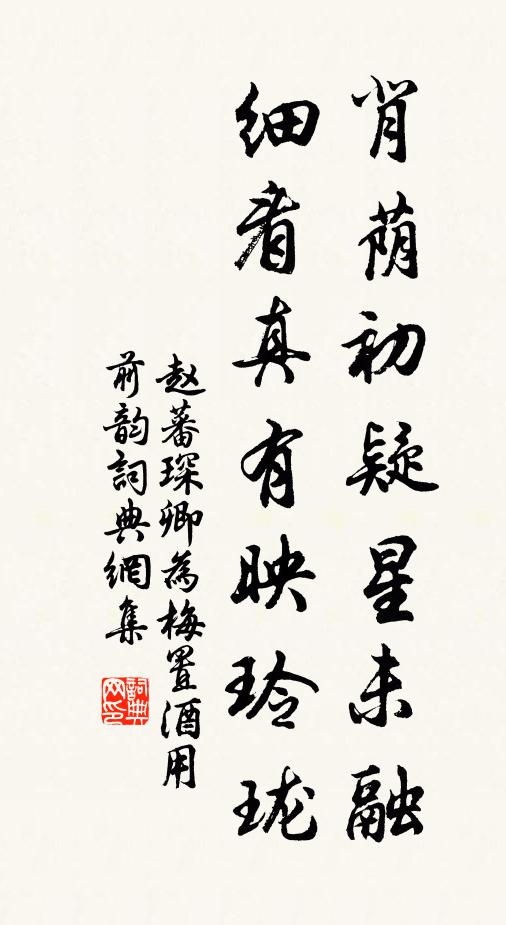 背荫初疑星未融
细看真有映玲珑
赵蕃琛卿为梅置酒用
前韵词典網集
詞典网印